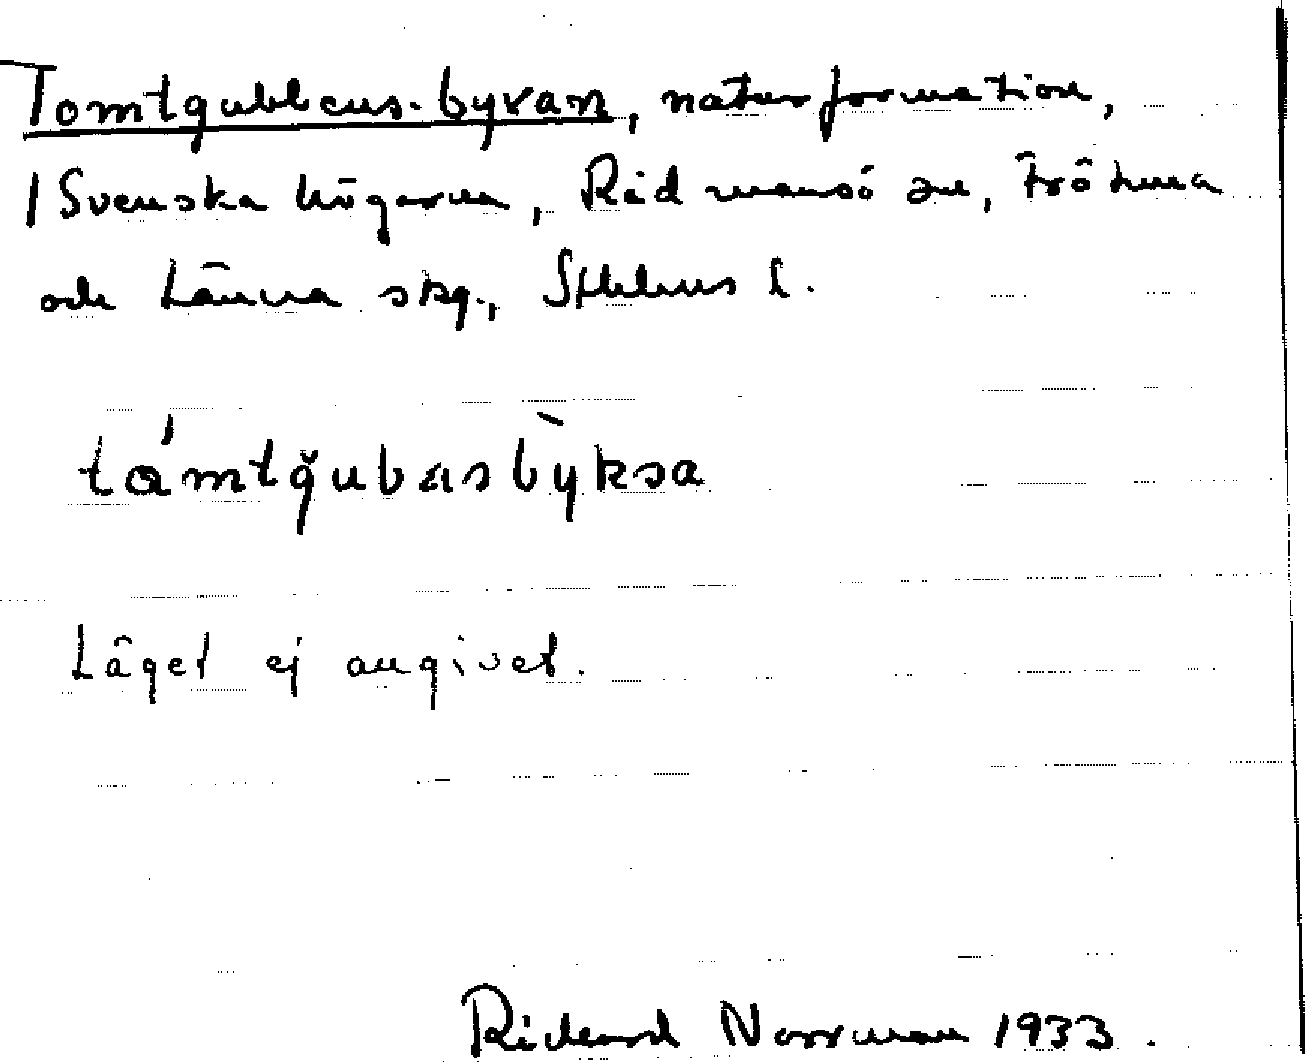 Tomtgubbens-byxan, naturformation,
/ Svenska högarna, Rådmansö sn, Frötuna
och Länna skg., Sthlms l.
tα´mtğubasbỳksa
Läget ej angivet.
Rickard Norrman 1933.